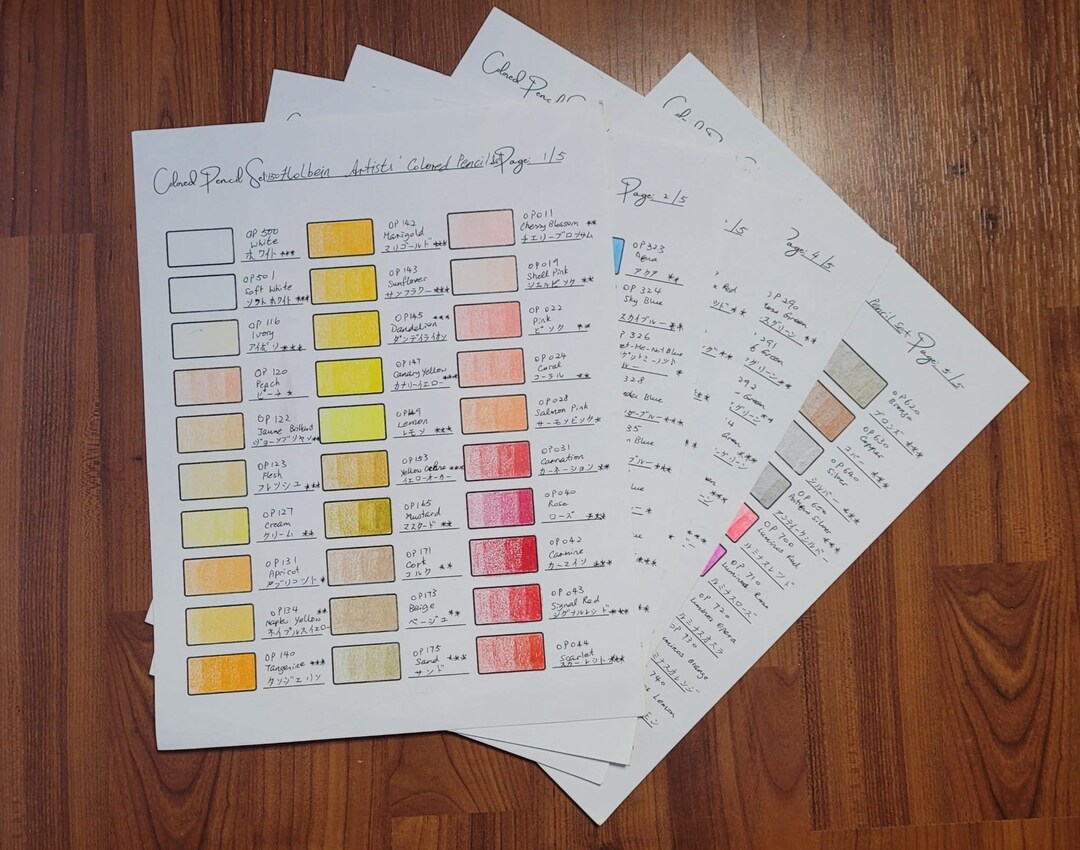 Colored Pencil Set: 150 Holbein Artists' Colored Pencil Set Page: 1/5
OP 500
White
ホワイト ***
OP 501
Soft White
ソフトホワイト ***
OP 116
Ivory
アイボリー ***
OP 120
Peach
ピーチ *
OP 122
Jaune Brilliant
ジョーンブリヤン **
OP 123
Flesh
フレッシュ **
OP 127
Cream
クリーム **
OP 131
Apricot
アプリコット *
OP 134 **
Naples Yellow
ネイプルスイエロー
OP 140
Tangerine ***
タンジェリン
OP 142
Marigold
マリゴールド ***
OP 143
Sunflower
サンフラワー ***
OP 145 ***
Dandelion
ダンデライオン
OP 147
Canary Yellow
カナリーイエロー ***
OP 149
Lemon
レモン ***
OP 153
Yellow Ochre ***
イエローオーカー
OP 165
Mustard
マスタード **
OP 171
Cork
コルク **
OP 173
Beige
ベージュ **
OP 175
Sand ***
サンド
OP 011
Cherry Blossom **
チェリーブロッサム
OP 019
Shell Pink
シェルピンク **
OP 022
Pink
ピンク **
OP 024
Coral
コーラル **
OP 028
Salmon Pink
サーモンピンク *
OP 031
Carnation
カーネーション **
OP 040
Rose
ローズ ***
OP 042
Carmine
カーマイン ***
OP 043
Signal Red
シグナルレッド ***
OP 044
Scarlet
スカーレット ***
Page: 2/5
OP 323
Aqua
アクア **
OP 324
Sky Blue
スカイブルー **
326
328
Blue
35
Blue
/5
Red
Page: 4/5
OP 290
Green
291
Green
292
Green
Green
Colored Pencil
Pencil Set Page: 5/5
OP 620
Bronze
ブロンズ ***
OP 630
Copper
コパー ***
OP 640
Silver
シルバー ***
OP 650
Antique Silver
アンティークシルバー ***
OP 700
Luminous Red
ルミナスレッド
OP 710
Luminous Rose
ルミナスローズ
OP 720
Luminous Opera
ルミナスオペラ
OP 730
Orange
ミナスオレンジ
740
Lemon
モン